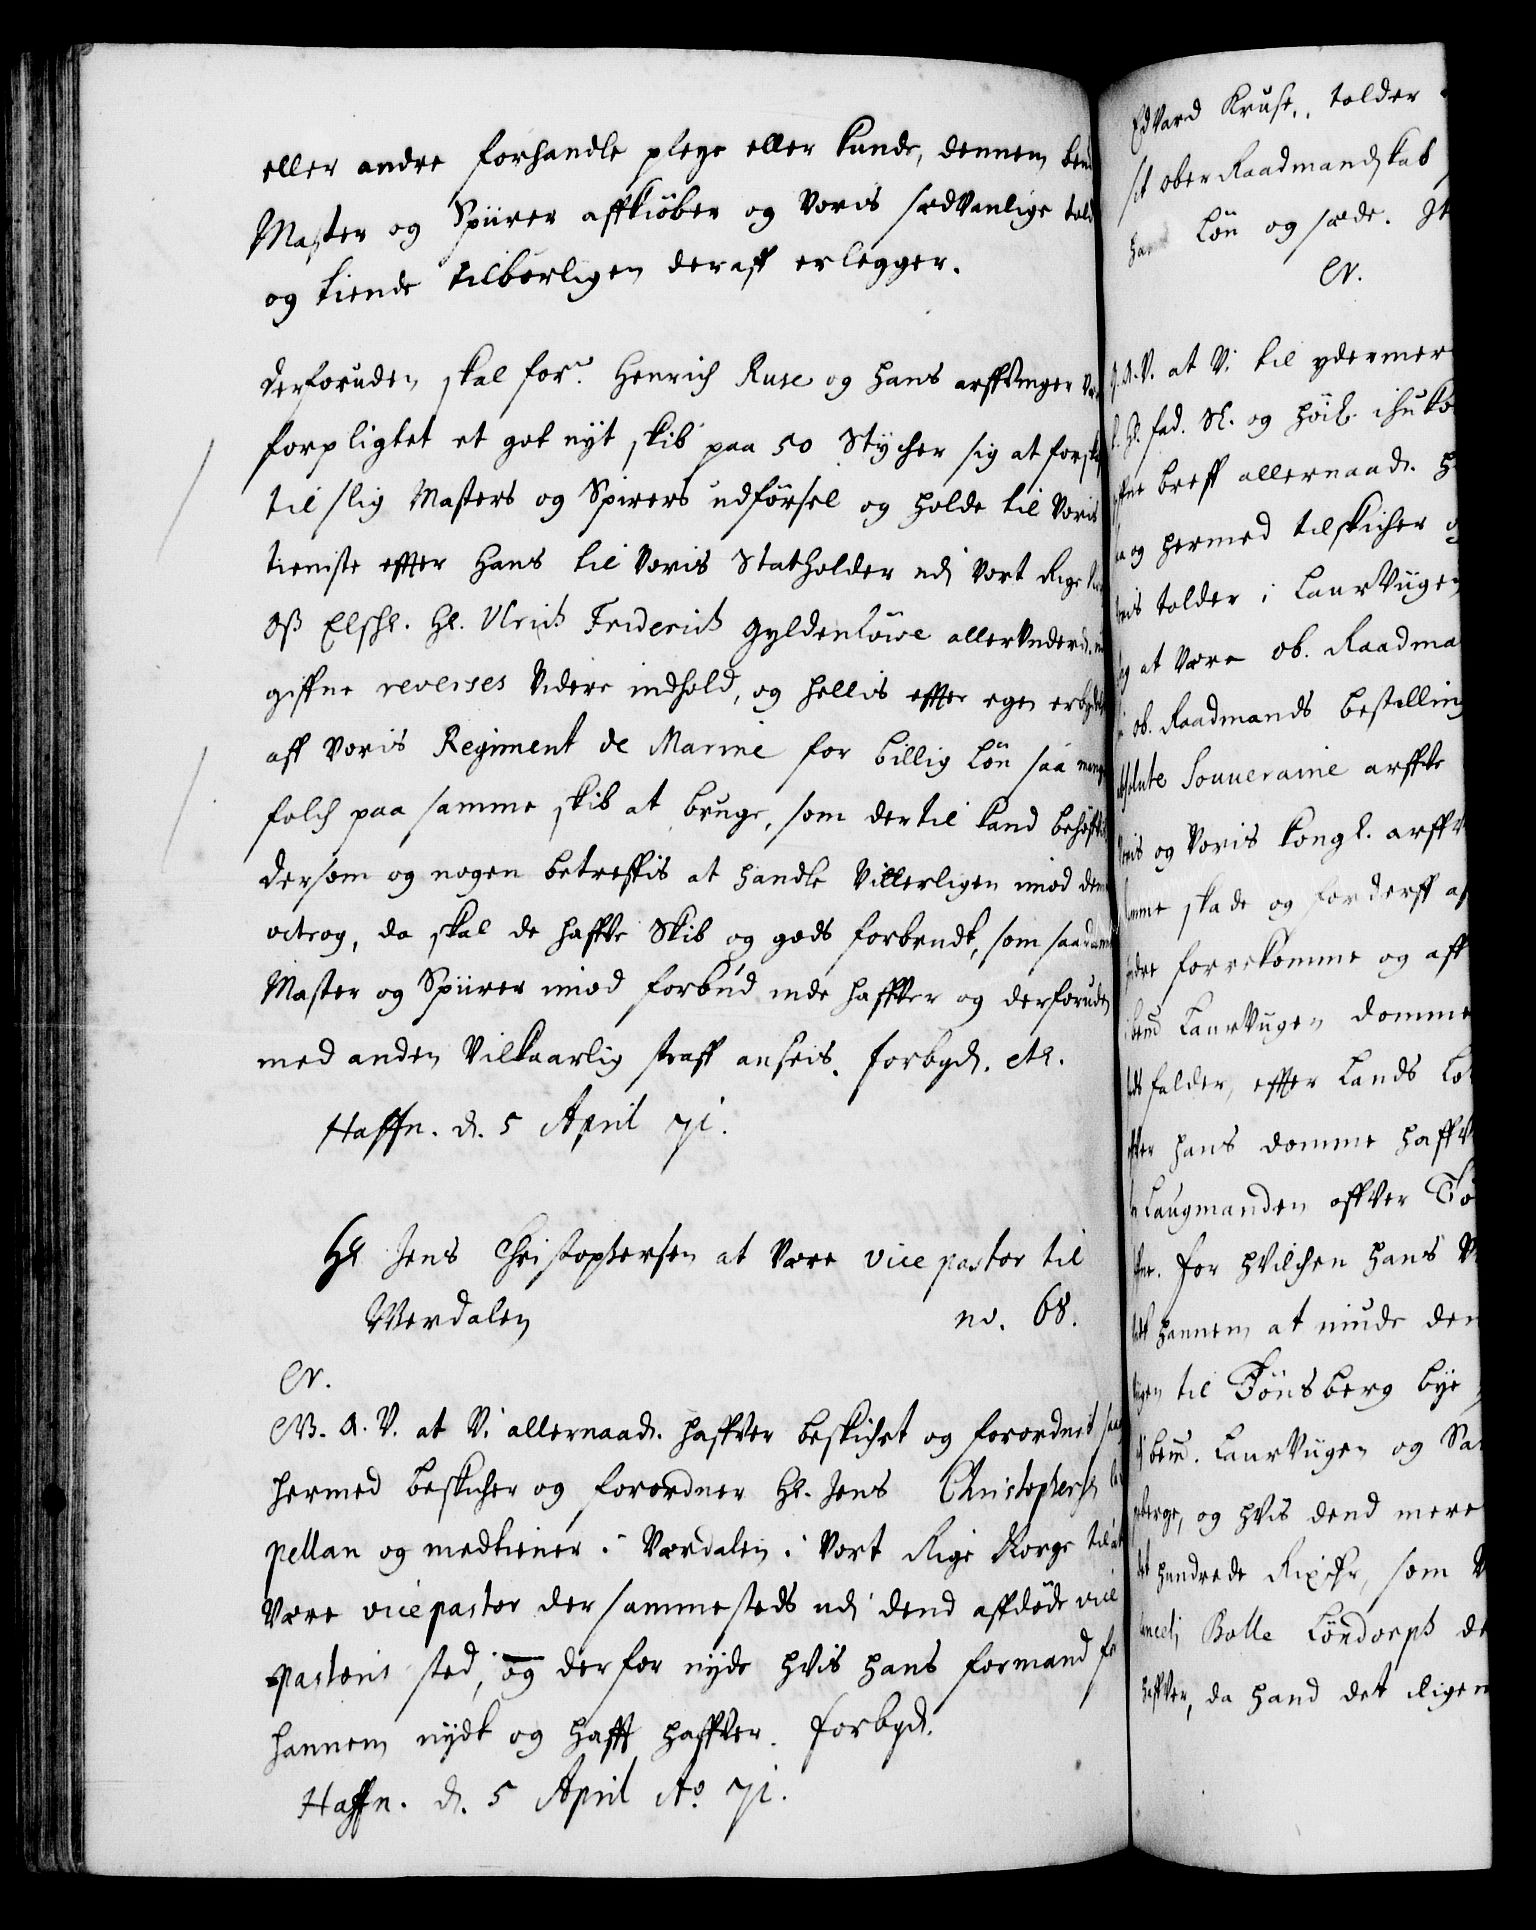 eller andre forhandle pleye eller kunde, dennem
Master og Spiirer affkiöber og Voris sædvanlige told
og tiende tilbørligen deraff erlegger.
derforuden skal for: Henrich Ruse og hans arffvinger
forpligtet et got nyt skib paa 50 Stycher sig at
til slig Masters og Spirers udförsel og holde til Voris
tieniste efter Hans til Voris Statholder udj Vort Rige
Oß Elschl. Hl. Ulrich Friderich Gyldenlöwe allerunderd.
giffne reverses Videre indhold, og hellis effter egen
aff Voris Regiment de Marine for billig Lön saa mange
folch paa samme skib at bruge, som dertil kand
dersom og nogen betreffis at handle Villerligen imod
octroy, da skal de haffve Skib og gods forbrudt, som
Master og Spiirer imod forbud inde haffver og derforuden
med anden Vilkaarlig straff anseis. forbyd. etc.
Haffn. d. 5 April 71.
Hl Jens Christophersen at Være vice pastor til
Werdalen no. 68.
CV.
G. A. V. at Vi allernaad. haffver beskichet og forordnet
hermed beskicher og forordner Hl. Jens Christophersen
pellan og medtiener i Værdalen i Vort Rige Norge til at
Være vice pastor dersammesteds udj dend affdöde vice
pastoris sted, og derfor nyde hvis hans formand for
hannem nydt og hafft haffver. forbyd.
Haffn. d. 5 April Ao. 71.
Edvard Kruse, tolder
sit ober Raadmandskab
Lön og sæde.
CV.
G. A. V. at Vi til ydermer
fad. Sl. og höil. ihuko
breff allernaad.
og hermed tilskicher
tolder i Laurviigen
at Være ob. Raadma
ob. Raadmands bestelling
Souveraine arffve
og Voris Kongl. arff
skade og forderff
forrekomme og aff
Laurvigen domme
falder, effter Lands Lo
hans domme haffv
Laugmanden offver
for hvilchen hans
hannem at niude den
til Tönsberg bye
bem. Laurviigen og
og hvis dend mere
hundrede Rixdr, som
Bolle Löndorph
haffver, da hand det